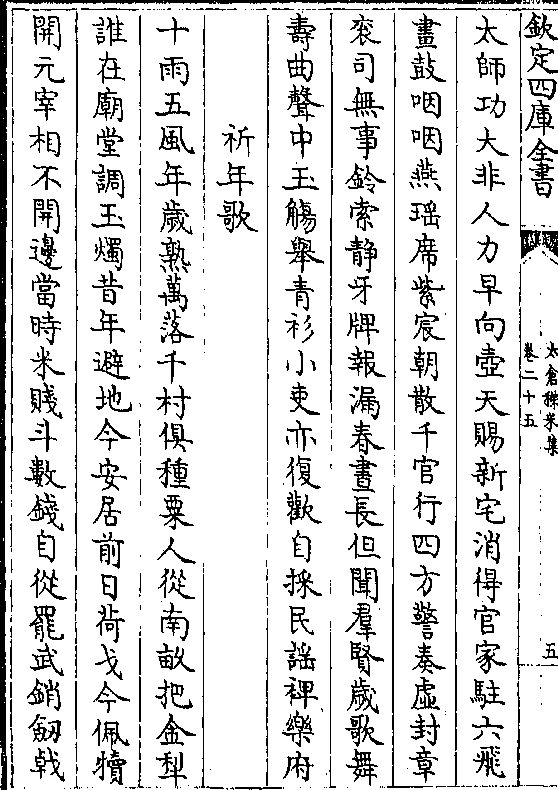 欽定四庫全書
太倉稊米集
卷二十五
五
太師功大非人力早向壺天賜新宅消得官家駐六飛
畫鼓咽咽燕瑶席紫宸朝散千官行四方警奏虛封章
衮司無事鈴索静牙牌報漏春晝長但聞羣賢歲歌舞
壽曲聲中玉觴舉青衫小吏亦復歡自採民謡裨樂府
祈年歌
十雨五風年歲熟萬落千村俱種粟人從南畝把金犁
誰在廟堂調玉燭昔年避地今安居前日荷戈今佩犢
開元宰相不開邊當時米賤斗數錢自從罷武銷劒戟